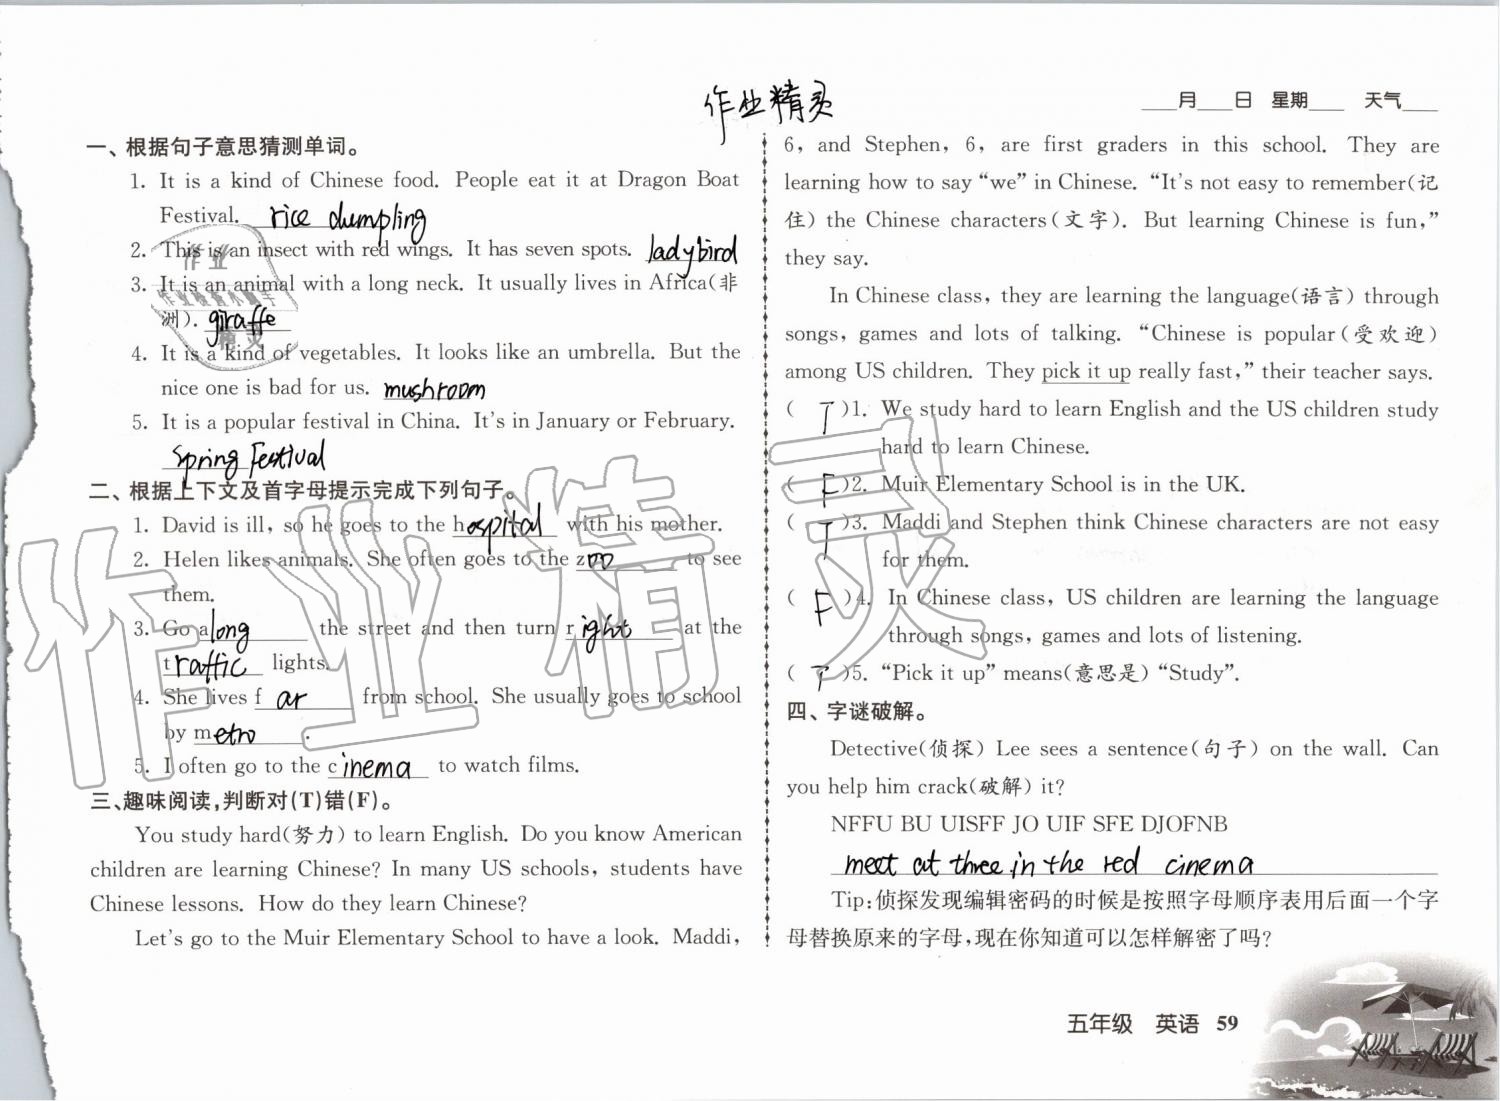 作业精灵
____月____日 星期____ 天气____
一、根据句子意思猜测单词。
1. It is a kind of Chinese food. People eat it at Dragon Boat
Festival. rice dumpling
2. This is an insect with red wings. It has seven spots. ladybird
3. It is an animal with a long neck. It usually lives in Africa(非
洲). giraffe
4. It is a kind of vegetables. It looks like an umbrella. But the
nice one is bad for us. mushroom
5. It is a popular festival in China. It's in January or February.
Spring Festival
二、根据上下文及首字母提示完成下列句子。
1. David is ill, so he goes to the hospital with his mother.
2. Helen likes animals. She often goes to the zoo to see
them.
3. Go along the street and then turn right at the
traffic lights.
4. She lives far from school. She usually goes to school
by metro.
5. I often go to the cinema to watch films.
三、趣味阅读,判断对(T)错(F)。
You study hard(努力) to learn English. Do you know American
children are learning Chinese? In many US schools, students have
Chinese lessons. How do they learn Chinese?
Let's go to the Muir Elementary School to have a look. Maddi,
6, and Stephen, 6, are first graders in this school. They are
learning how to say “we” in Chinese. “It's not easy to remember(记
住) the Chinese characters(文字). But learning Chinese is fun,”
they say.
In Chinese class, they are learning the language(语言) through
songs, games and lots of talking. “Chinese is popular(受欢迎)
among US children. They pick it up really fast,” their teacher says.
( T )1. We study hard to learn English and the US children study
hard to learn Chinese.
( F )2. Muir Elementary School is in the UK.
( T )3. Maddi and Stephen think Chinese characters are not easy
for them.
( F )4. In Chinese class, US children are learning the language
through songs, games and lots of listening.
( T )5. “Pick it up” means(意思是) “Study”.
四、字谜破解。
Detective(侦探) Lee sees a sentence(句子) on the wall. Can
you help him crack(破解) it?
NFFU BU UISFF JO UIF SFE DJOFNB
meet at three in the red cinema
Tip:侦探发现编辑密码的时候是按照字母顺序表用后面一个字
母替换原来的字母,现在你知道可以怎样解密了吗?
五年级 英语 59
作业精灵